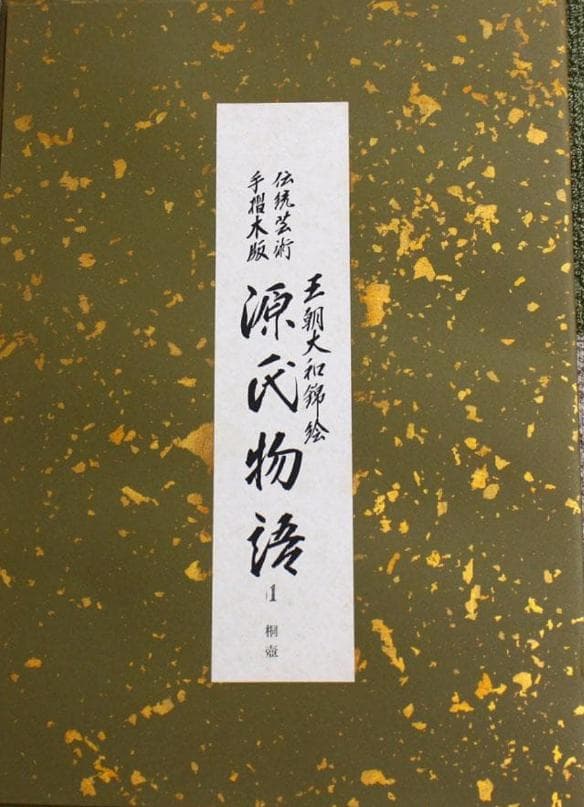 伝統芸術
手摺木版
王朝大和錦絵
源氏物語
1
桐壺